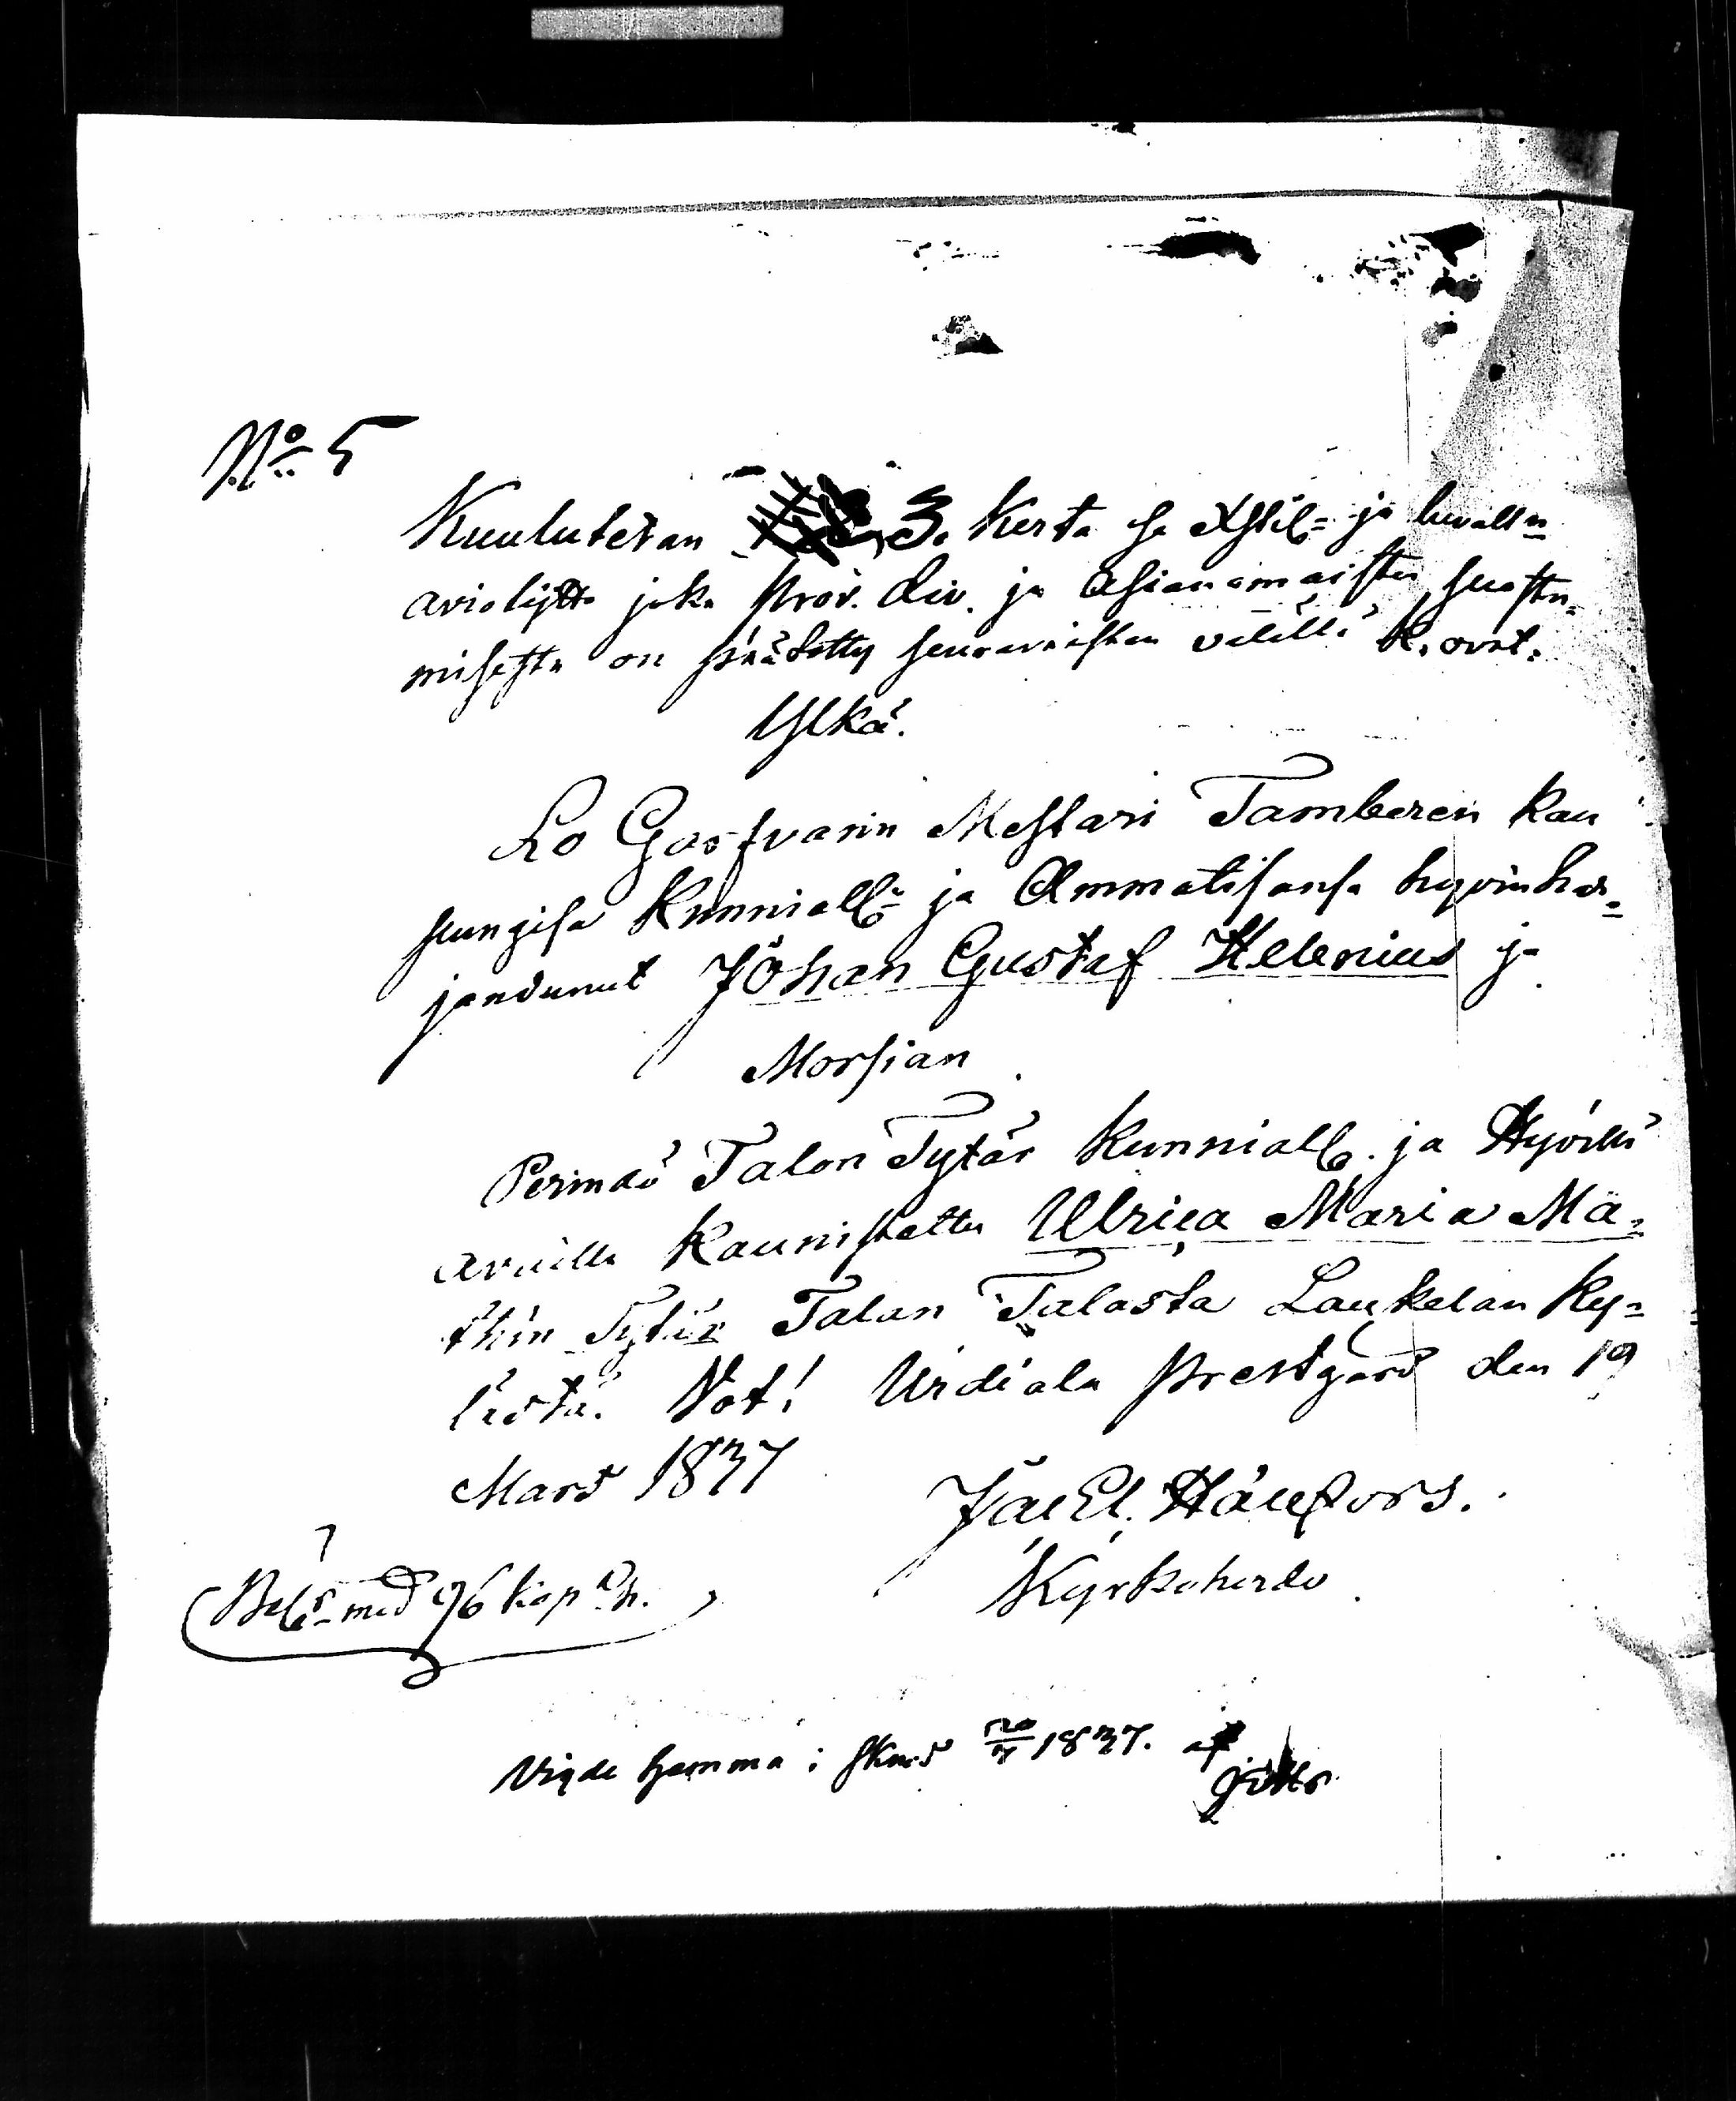 No 5
Kuulutetan 3. Kerta se Xstil= ja luvallin
aviolijtto joka prov. div. ja Asianomaisten suostu=
misesta on päätetty seuravaisten välillä k. ovat.
Ylkä.
Lo Garfvarin Mestari Tamberein Kau
pungisa Kunniall= ja Ammatisansa hyvin har=
jandunut Johan Gustaf Helenius ja
Morsian
Perindö Talon Tytär Kunniall. ja Hyvillä
avuilla Kaunistettu Ulrica Maria Ma=
thin Tytär Talan Talosta Laukelan Ky=
lästä. Not! Urdiala Prestgård den 19
Mars 1837
Jac El. Hänfors.
Kyrkoherde
med 96 kop
Vigde hemma i 1837. af